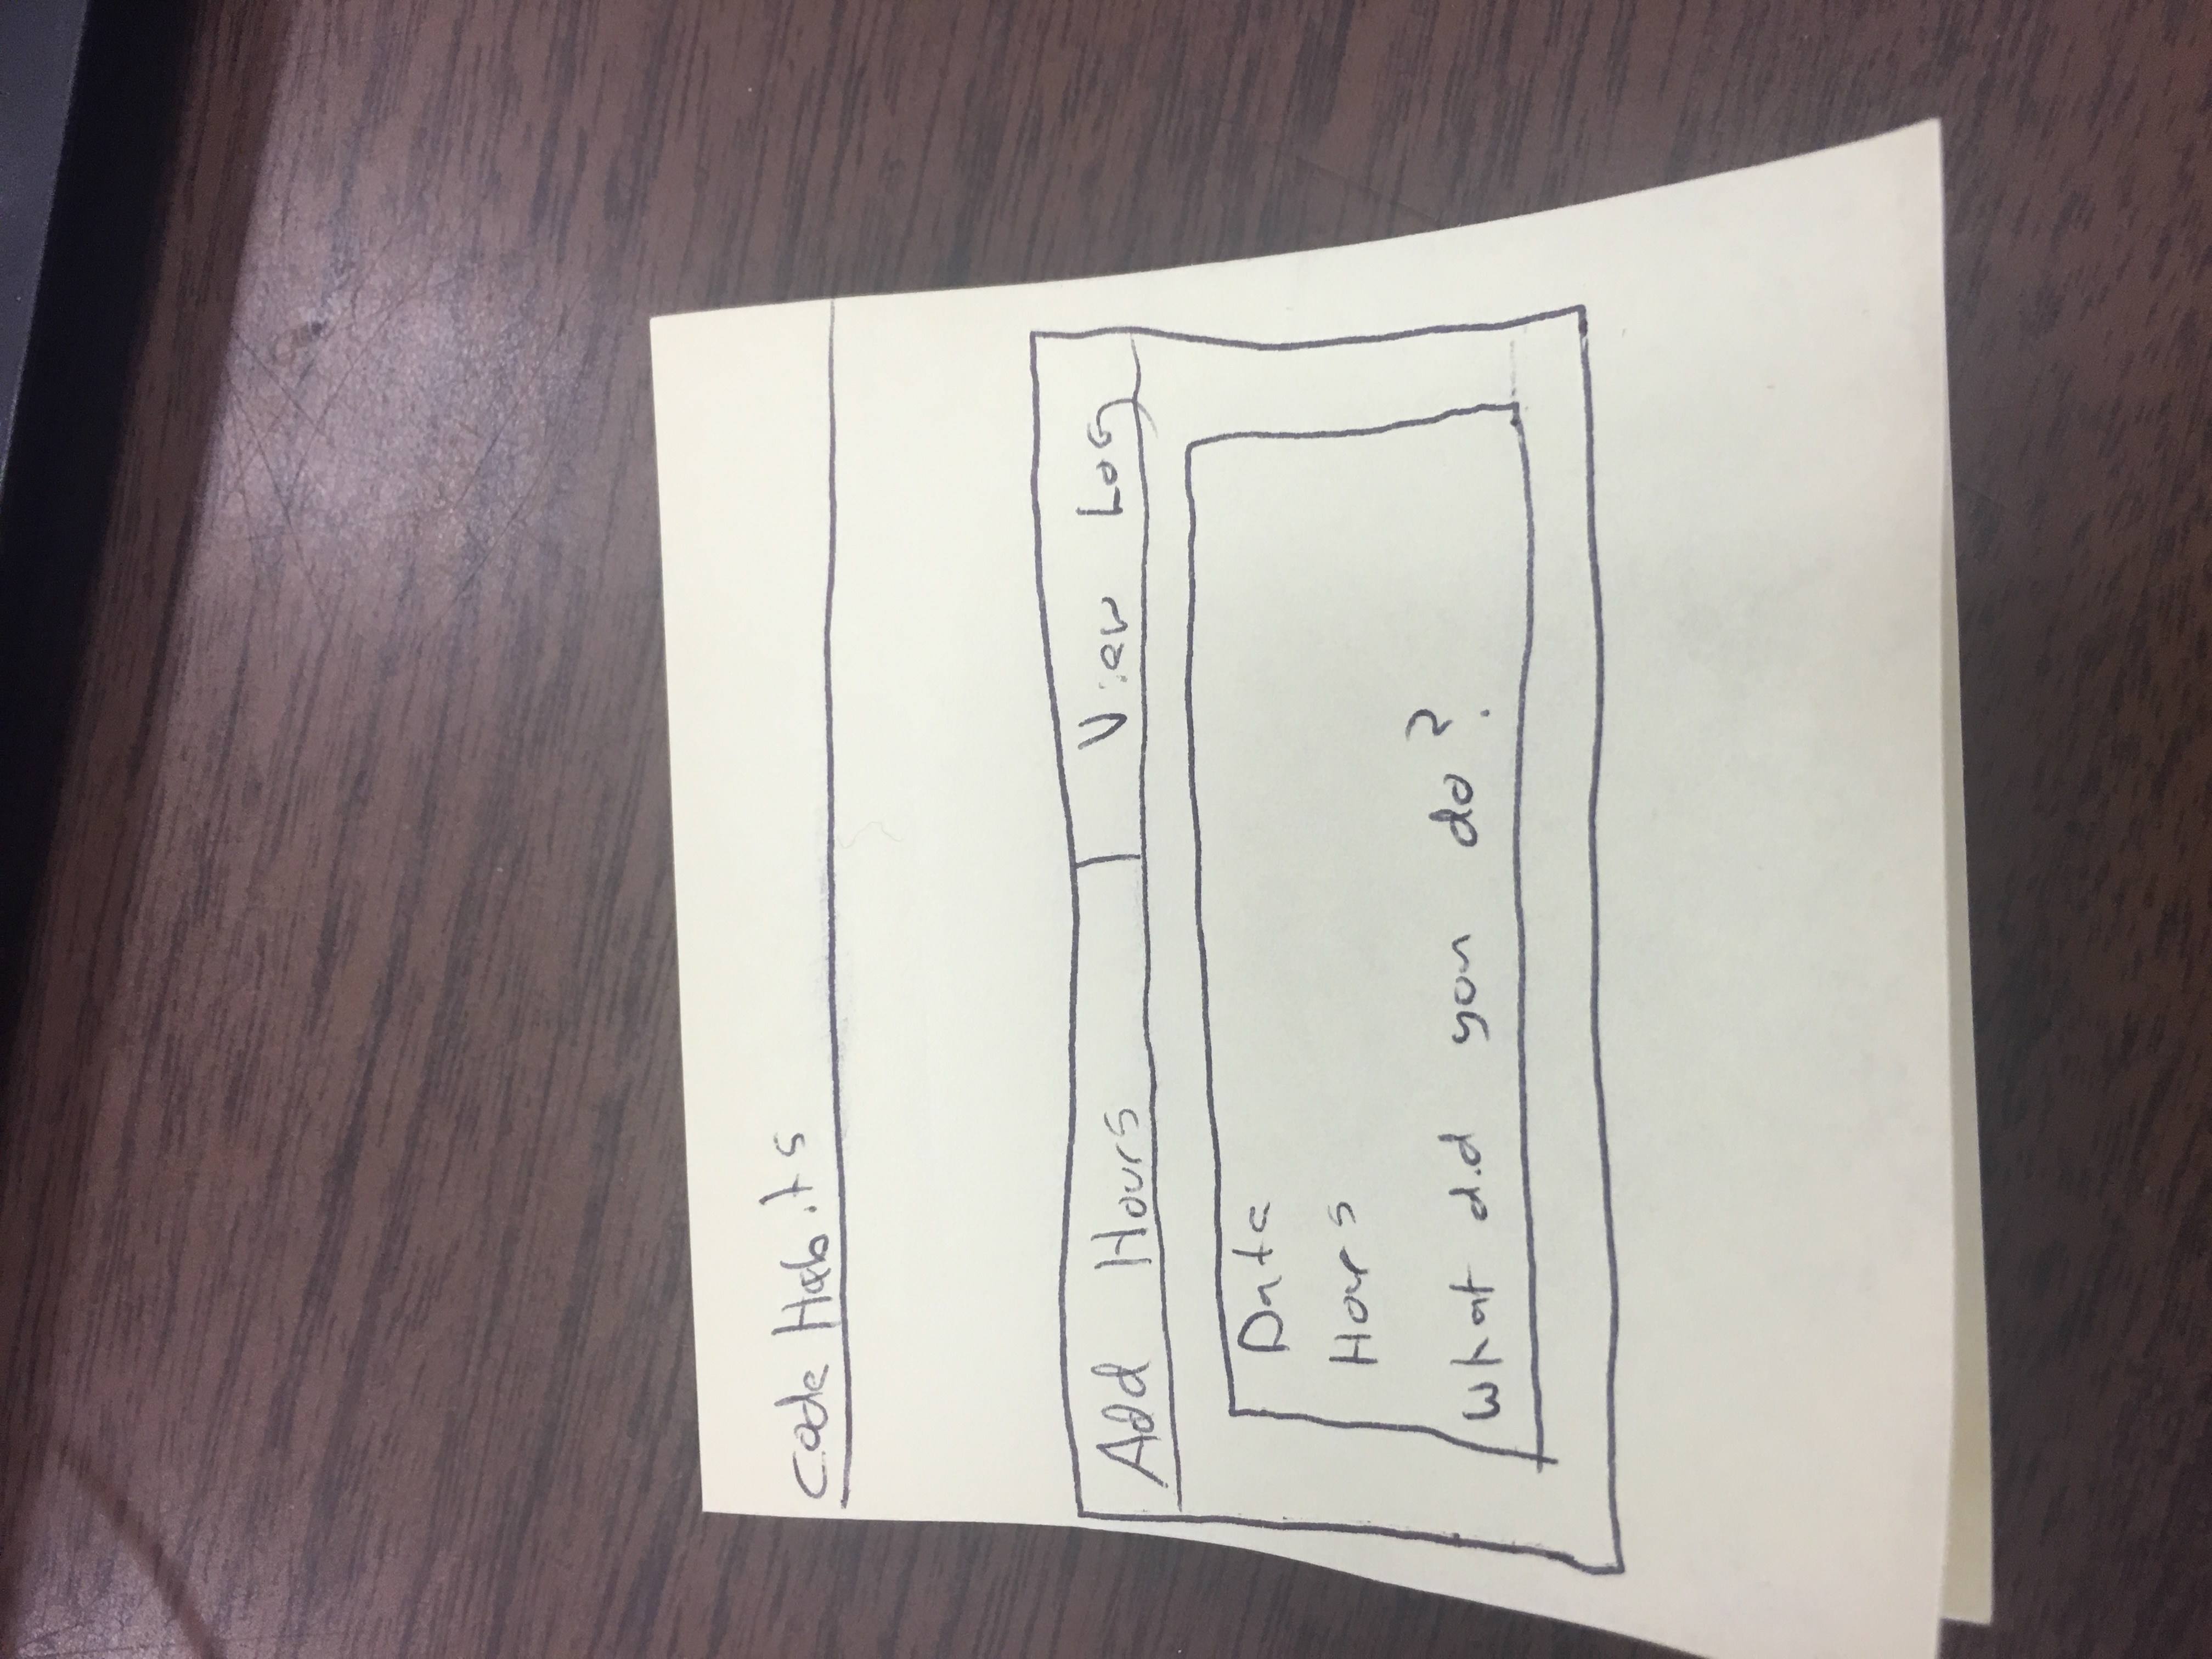 Code Habits
Add Hours View Log
Date
Hours
What did you do?